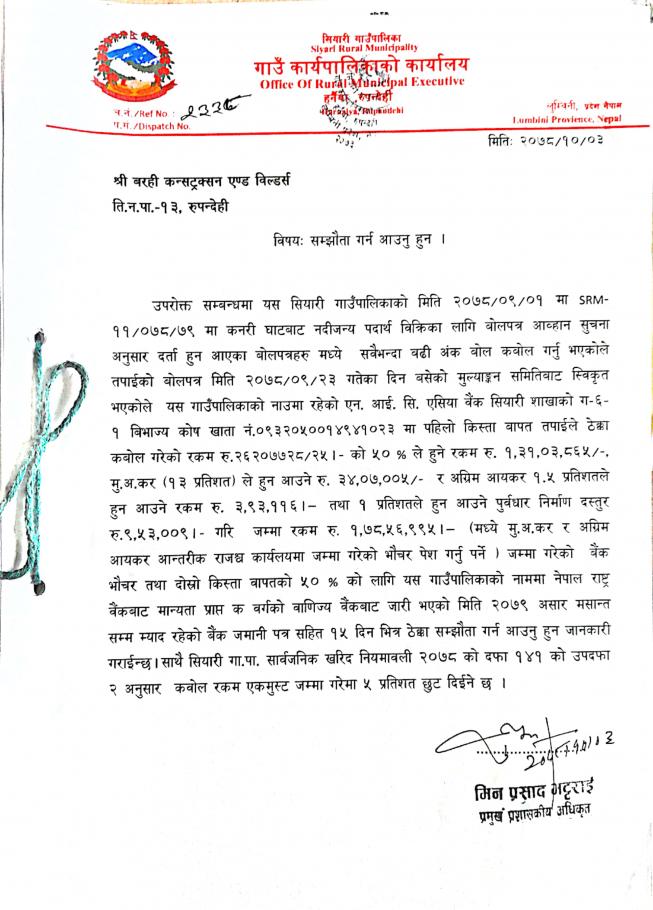 सियारी गाउँपालिका
Siyari Rural Municipality
गाउँ कार्यपालिकाको कार्यालय
Office Of Rural Municipal Executive
हर्नैया, रुपन्देही
च.नं./Ref No. :
प.सं./Dispatch No.
लुम्बिनी, प्रदेश नेपाल
Lumbini Provience, Nepal
मितिः २०७८/१०/०३
श्री बरही कन्सट्रक्सन एण्ड विल्डर्स
ति.न.पा.-१३, रुपन्देही
विषयः सम्झौता गर्न आउनु हुन ।
उपरोक्त सम्बन्धमा यस सियारी गाउँपालिकाको मिति २०७८/०९/०१ मा SRM-
११/०७८/७९ मा कनरी घाटबाट नदीजन्य पदार्थ विक्रिका लागि बोलपत्र आव्हान सुचना
अनुसार दर्ता हुन आएका बोलपत्रहरु मध्ये सवैभन्दा वढी अंक वोल कवोल गर्नु भएकोले
तपाईको बोलपत्र मिति २०७८/०९/२३ गतेका दिन बसेको मुल्याङ्कन समितिबाट स्विकृत
भएकोले यस गाउँपालिकाको नाउमा रहेको एन. आई. सि. एसिया बैंक सियारी शाखाको ग-६-
१ बिभाज्य कोष खाता नं.०९३२०५००१४९४१०२३ मा पहिलो किस्ता बापत तपाईले ठेक्का
कवोल गरेको रकम रु.२६२०७७२८/२५।- को ५० % ले हुने रकम रु. १,३१,०३,८६५/-,
मु.अ.कर (१३ प्रतिशत) ले हुन आउने रु. ३४,०७,००५/- र अग्रिम आयकर १.५ प्रतिशतले
हुन आउने रकम रु. ३,९३,११६।– तथा १ प्रतिशतले हुन आउने पुर्वधार निर्माण दस्तुर
रु.९,५३,००९।- गरि जम्मा रकम रु. १,७८,५६,९९५।– (मध्ये मु.अ.कर र अग्रिम
आयकर आन्तरीक राजश्व कार्यलयमा जम्मा गरेको भौचर पेश गर्नु पर्ने ) जम्मा गरेको बैंक
भौचर तथा दोस्रो किस्ता वापतको ५० % को लागि यस गाउँपालिकाको नाममा नेपाल राष्ट्र
वैंकबाट मान्यता प्राप्त क बर्गको वाणिज्य बैंकबाट जारी भएको मिति २०७९ असार मसान्त
सम्म म्याद रहेको बैंक जमानी पत्र सहित १५ दिन भित्र ठेक्का सम्झौता गर्न आउनु हुन जानकारी
गराईन्छ। साथै सियारी गा.पा. सार्वजनिक खरिद नियमावली २०७८ को दफा १४१ को उपदफा
२ अनुसार कवोल रकम एकमुस्ट जम्मा गरेमा ५ प्रतिशत छुट दिईने छ ।
मिन प्रसाद भट्टराई
प्रमुख प्रशासकीय अधिकृत